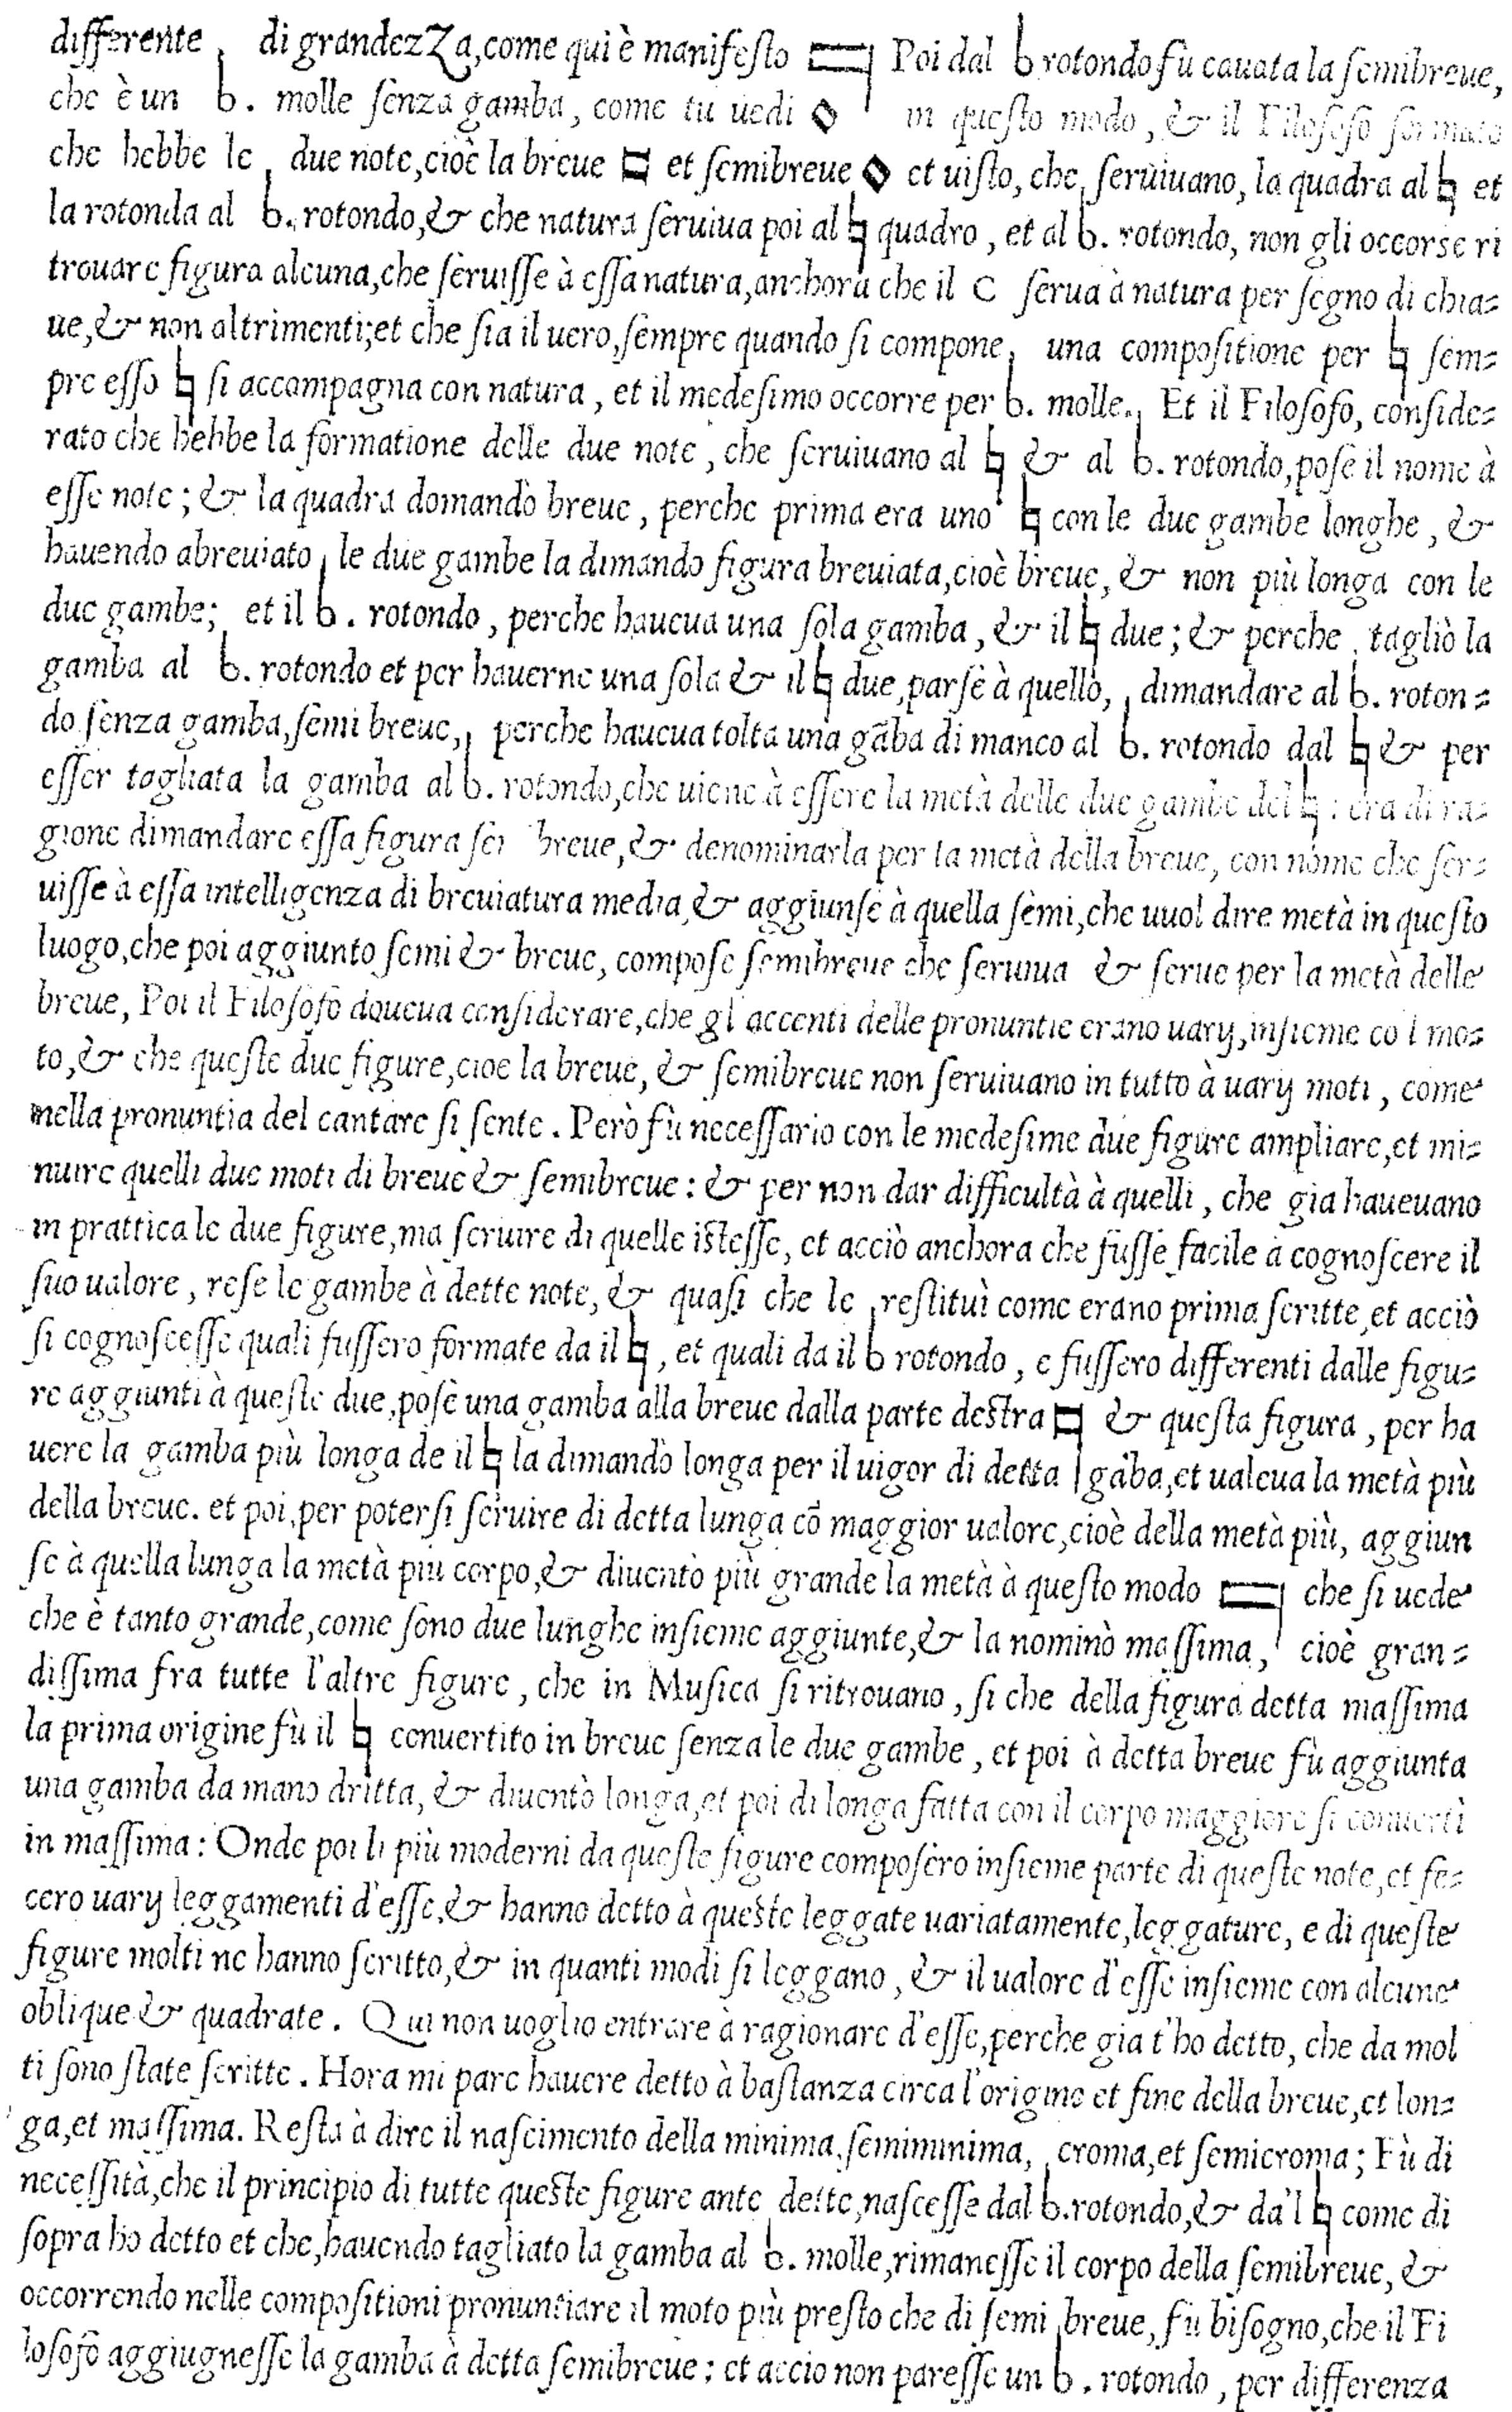 differente di grandezza, come qui è manifesto Poi dal b rotondo fù cauata la ſemibreue,
che è un b. molle ſenza gamba, come tu uedi in queſto modo, & il Filoſofo formato
che hebbe le due note, cioè la breue et ſemibreue et uiſto, che ſeruiuano, la quadra al ♮ et
la rotonda al b. rotondo, & che natura ſeruiua poi al ♮ quadro, et al b. rotondo, non gli occorse ri
trouare figura alcuna, che ſeruiſſe à eſſa natura, anchora che il C ſerua à natura per ſegno di chia⸗
ue, & non altrimenti; et che ſia il uero, ſempre quando ſi compone, una compoſitione per ♮ ſem⸗
pre eſſo ♮ ſi accompagna con natura, et il medeſimo occorre per b. molle. Et il Filoſofo, conſide⸗
rato che hebbe la formatione delle due note, che ſeruiuano al ♮ & al b. rotondo, poſe il nome à
eſſe note; & la quadra domandò breue, perche prima era uno ♮ con le due gambe longhe, &
hauendo abreuiato le due gambe la dimandò figura breuiata, cioè breue, & non più longa con le
due gambe; et il b. rotondo, perche haueua una ſola gamba, & il ♮ due; & perche tagliò la
gamba al b. rotondo et per hauerne una ſola & il ♮ due, parſe à quello, dimandare al b. roton⸗
do ſenza gamba, ſemi breue, perche haueua tolta una gãba di manco al b. rotondo dal ♮ & per
eſſer tagliata la gamba al b. rotondo, che uiene à eſſere la metà delle due gambe del ♮: era di ra⸗
gione dimandare eſſa figura breue, & denominarla per la metà della breue, con nome che ſer⸗
uiſſe à eſſa intelligenza di breuiatura media, & aggiunſe à quella ſemi, che uuol dire metà in queſto
luogo, che poi aggiunto ſemi & breue, compoſe ſemibreue che ſeruiua & ſerue per la metà delle
breue, Poi il Filoſofo doueua conſiderare, che gl accenti delle pronuntie erano uarij, inſieme co l mo⸗
to, & che queſte due figure, cioe la breue, & ſemibreue non ſeruiuano in tutto à uarij moti, come
nella pronuntia del cantare ſi ſente. Però fù neceſſario con le medeſime due figure ampliare, et mi⸗
nuire quelli due moti di breue & ſemibreue: & per non dar difficultà à quelli, che gia haueuano
in prattica le due figure, ma ſeruire di quelle iſteſſe, et acciò anchora che fuſſe facile à cognoſcere il
ſuo ualore, reſe le gambe à dette note, & quaſi che le reſtituì come erano prima ſcritte, et acciò
ſi cognoſceſſe quali fuſſero formate da il ♮, et quali da il b rotondo, e fuſſero differenti dalle figu⸗
re aggiunti à queſte due, poſe una gamba alla breue dalla parte deſtra & queſta figura, per ha
uere la gamba più longa de il ♮ la dimandò longa per il uigor di detta gãba, et ualeua la metà più
della breue. et poi, per poterſi ſeruire di detta lunga cõ maggior ualore, cioè della metà più, aggiun
ſe à quella lunga la metà piu corpo, & diuentò più grande la metà à queſto modo che ſi uede
che è tanto grande, come ſono due lunghe inſieme aggiunte, & la nominò maſſima, cioè gran⸗
diſſima fra tutte l'altre figure, che in Muſica ſi ritrouano, ſi che della figura detta maſſima
la prima origine fù il ♮ conuertito in breue ſenza le due gambe, et poi à detta breue fù aggiunta
una gamba da mano dritta, & diuentò longa, et poi di longa fatta con il corpo maggiore ſi conuertì
in maſſima: Onde poi li più moderni da queſte figure compoſero inſieme parte di queſte note, et fe⸗
cero uarij leggamenti d'eſſe, & hanno detto à queſte leggate uariatamente, leggature, e di queſte
figure molti ne hanno ſcritto, & in quanti modi ſi leggano, & il ualore d'eſſe inſieme con alcune
oblique & quadrate. Qui non uoglio entrare à ragionare d'eſſe, perche gia t'ho detto, che da mol
ti ſono ſtate ſcritte. Hora mi pare hauere detto à baſtanza circa l'origine et fine della breue, et lon⸗
ga, et maſſima. Reſta à dire il naſcimento della minima, ſemiminima, croma, et ſemicroma; Fù di
neceſſità, che il principio di tutte queſte figure ante dette, naſceſſe dal b. rotondo, & da'l ♮ come di
ſopra ho detto et che, hauendo tagliato la gamba al b. molle, rimaneſſe il corpo della ſemibreue, &
occorrendo nelle compoſitioni pronuntiare il moto più preſto che di ſemi breue, fù biſogno, che il Fi
loſofo aggiugneſſe la gamba à detta ſemibreue: et accio non pareſſe un b. rotondo, per differenza